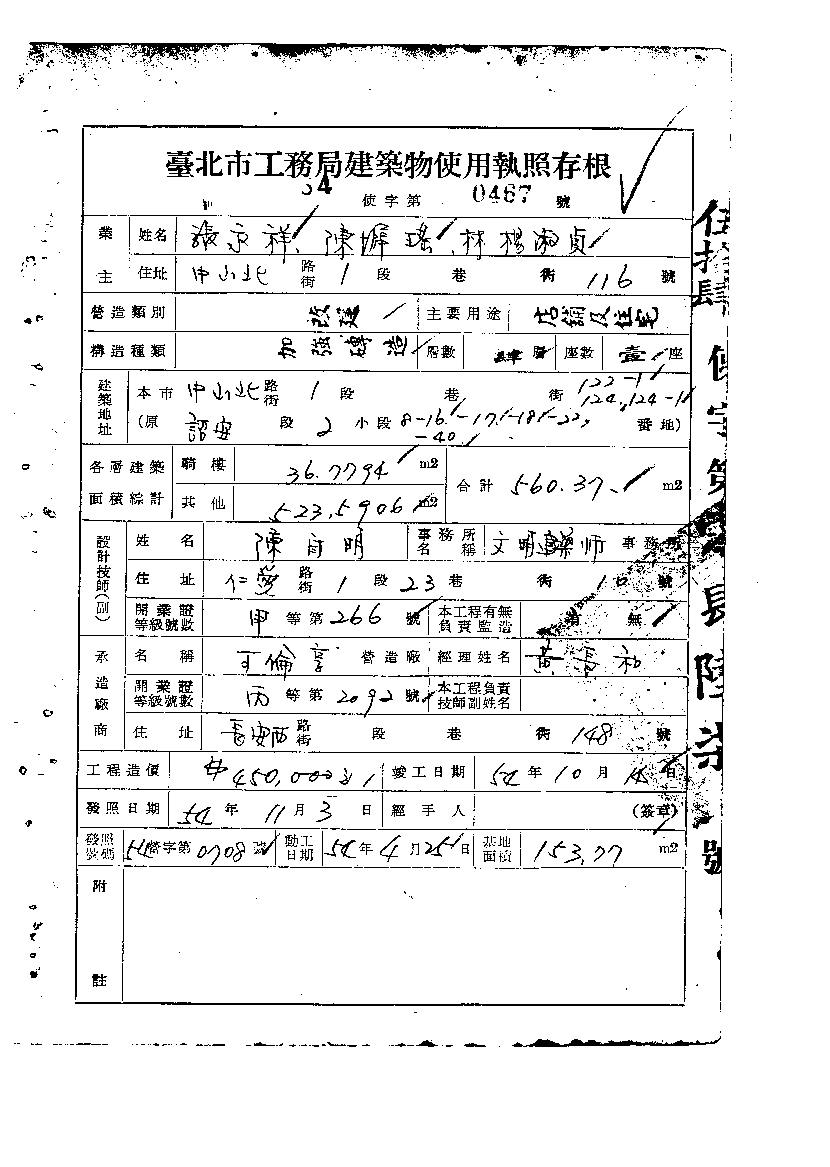 臺北市工務局建築物使用執照存根
54 使字第 0467 號
業主 姓名 張京祥、陳墀瑤、林楊淑貞
住址 中山北 路街 1 段 巷 衖 116 號
營造類別 改建 主要用途 店鋪及住宅
構造種類 加強磚造 層數 肆層 座數 壹座
建築地址 本市 中山北 路街 1 段 巷 衖 122-1 124,124-1
(原 段 2 小段 8-16-17-18-22, -40 番地)
各層建築面積綜計 騎樓 36.7794 m2 合計 560.37 m2
其他 523.5906 m2
設計技師(副) 姓名 陳 明 事務所名稱 文明建築师 事務所
住址 仁愛 路街 1 段 23 巷 衖 號
開業證等級號數 甲 等第 266 號 本工程有無負責監造 有 無
承造廠商 名稱 可倫亨 營造廠 經理姓名 黃 和
開業證等級號數 丙 等第 2092 號 本工程負責技師副姓名
住址 長安西 路街 段 巷 衖 148 號
工程造價 450,000 竣工日期 54 年 10 月 15 日
發照日期 54 年 11 月 3 日 經手人 (簽章)
發照號碼 54 營字第 0708 號 動工日期 54 年 4 月 25 日 基地面積 153.77 m2
附註
伍拾肆 使字第 長陸柒 號